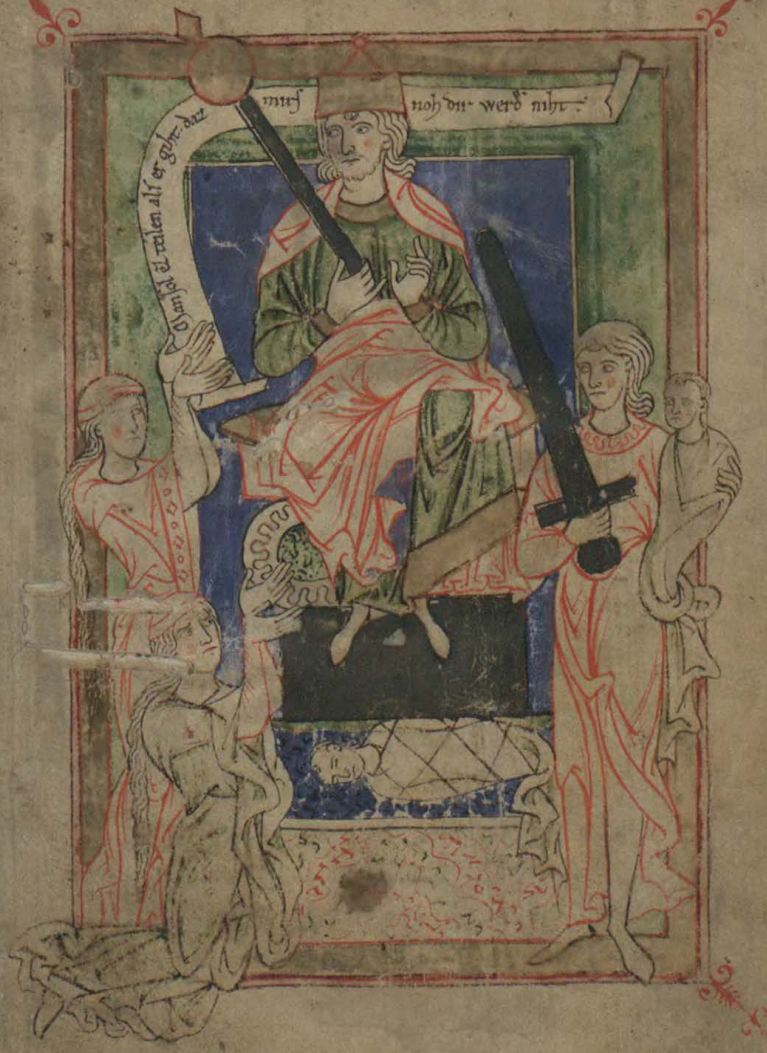 Man ſol ez teilen alſ er giht. daz mirſ noh dir werd̾ niht.